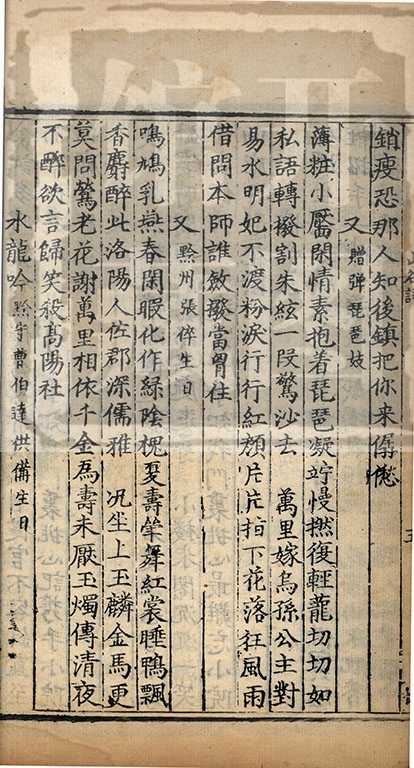 銷瘦恐那人知後鎮把你来僝僽
又 贈弹琵琶妓
薄粧小靨閑情素抱着琵琶凝竚慢撚復輕蘢切切如
私語轉撥割朱絃一叚驚沙去 萬里嫁烏孫公主對
易水明妃不渡粉淚行行紅顔片片指下花落狂風雨
借問本師誰斂撥當胷住
又 黔州張倅生日
鳴鳩乳燕春閑暇化作緑陰槐夏壽斝舞紅裳睡鴨飄
香麝醉此洛陽人佐郡深儒雅 况坐上玉麟金馬更
莫問鶯老花謝萬里相依千金爲壽未厭玉燭傳清夜
不醉欲言歸笑殺髙陽社
水龍吟 黔守曹伯達供備生日